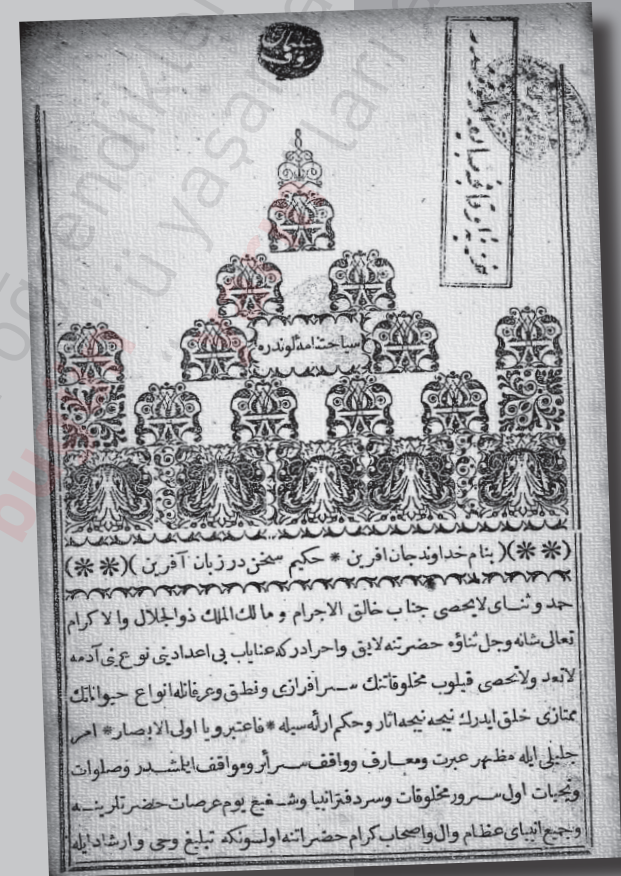 سياحتنامهٔ لوندره
بنام خداوند جان افرين * حكيم سخن در زبان آفرين
حمد وثنای لايحصی جناب خالق الاجرام ومالك الملك ذوالجلال والاكرام
تعالی شانه وجل ثناؤه حضرتنه لايق واحرادركه عناياب بی اعدادينی نوع بنی آدمه
لاتعد ولاتحصی قيلوب مخلوقاتنك سرافرازی ونطق وعرفانله انواع حيواناتك
ممتازی خلق ايدرك نيجه نيجه آثار وحكم ارائه سيله * فاعتبروا يا اولی الابصار * امر
جليلی ايله مظهر عبرت ومعارف وواقف سرائر ومواقف ايلمشدر وصلوات
وتحيات اول سرور مخلوقات وسردفتر انبيا وشفيع يوم عرصات حضرتلرينه
وجميع انبيای عظام وال واصحاب كرام حضراتنه اولسونكه تبليغ وحی وارشاد ايله